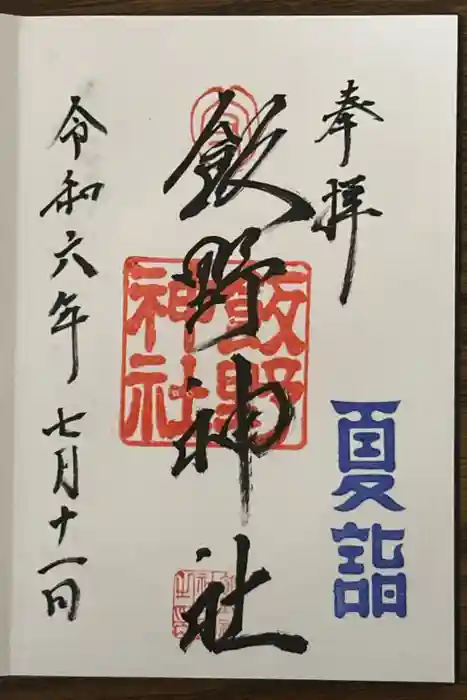 奉拝
夏詣
飯野神社
飯野
神社
令和六年七月十一日